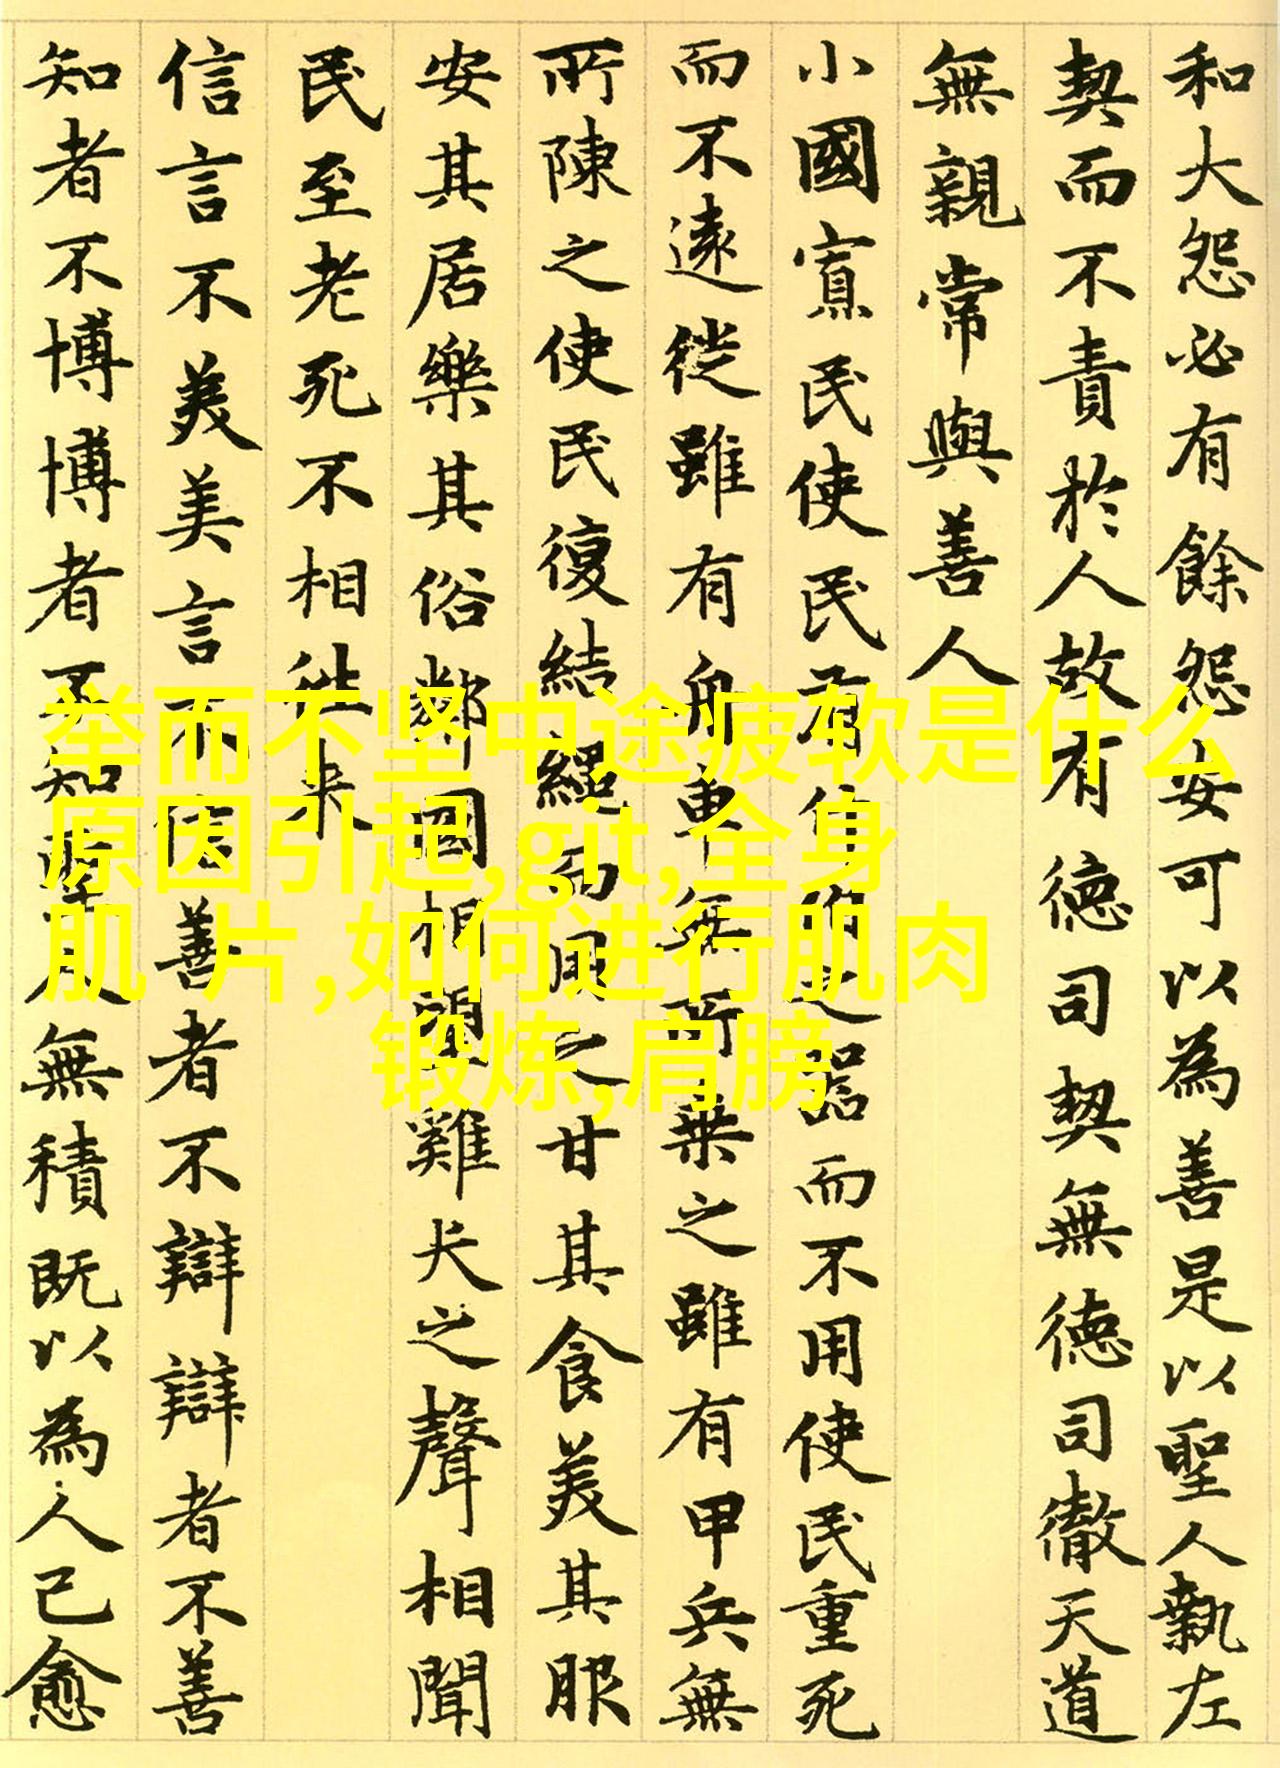 和大怨必有餘怨安可以為善是以聖人執左
契而不責於人故有德司契無德司徹天道
無親常與善人
小國寡民使民有什伯之器而不用使民重死
而不遠徙雖有舟車無所乗之雖有甲兵無
所陳之使民復結繩而用之甘其食美其服
安其居樂其俗鄰國相望雞犬之聲相聞
民至老死不相往来
信言不美美言不信善者不辯辯者不善
知者不博博者不知聖人無積既以為人己愈
举而不坚中途疲软是什么
原因引起,git,全身
肌 片,如何进行肌肉
锻炼,肩膀